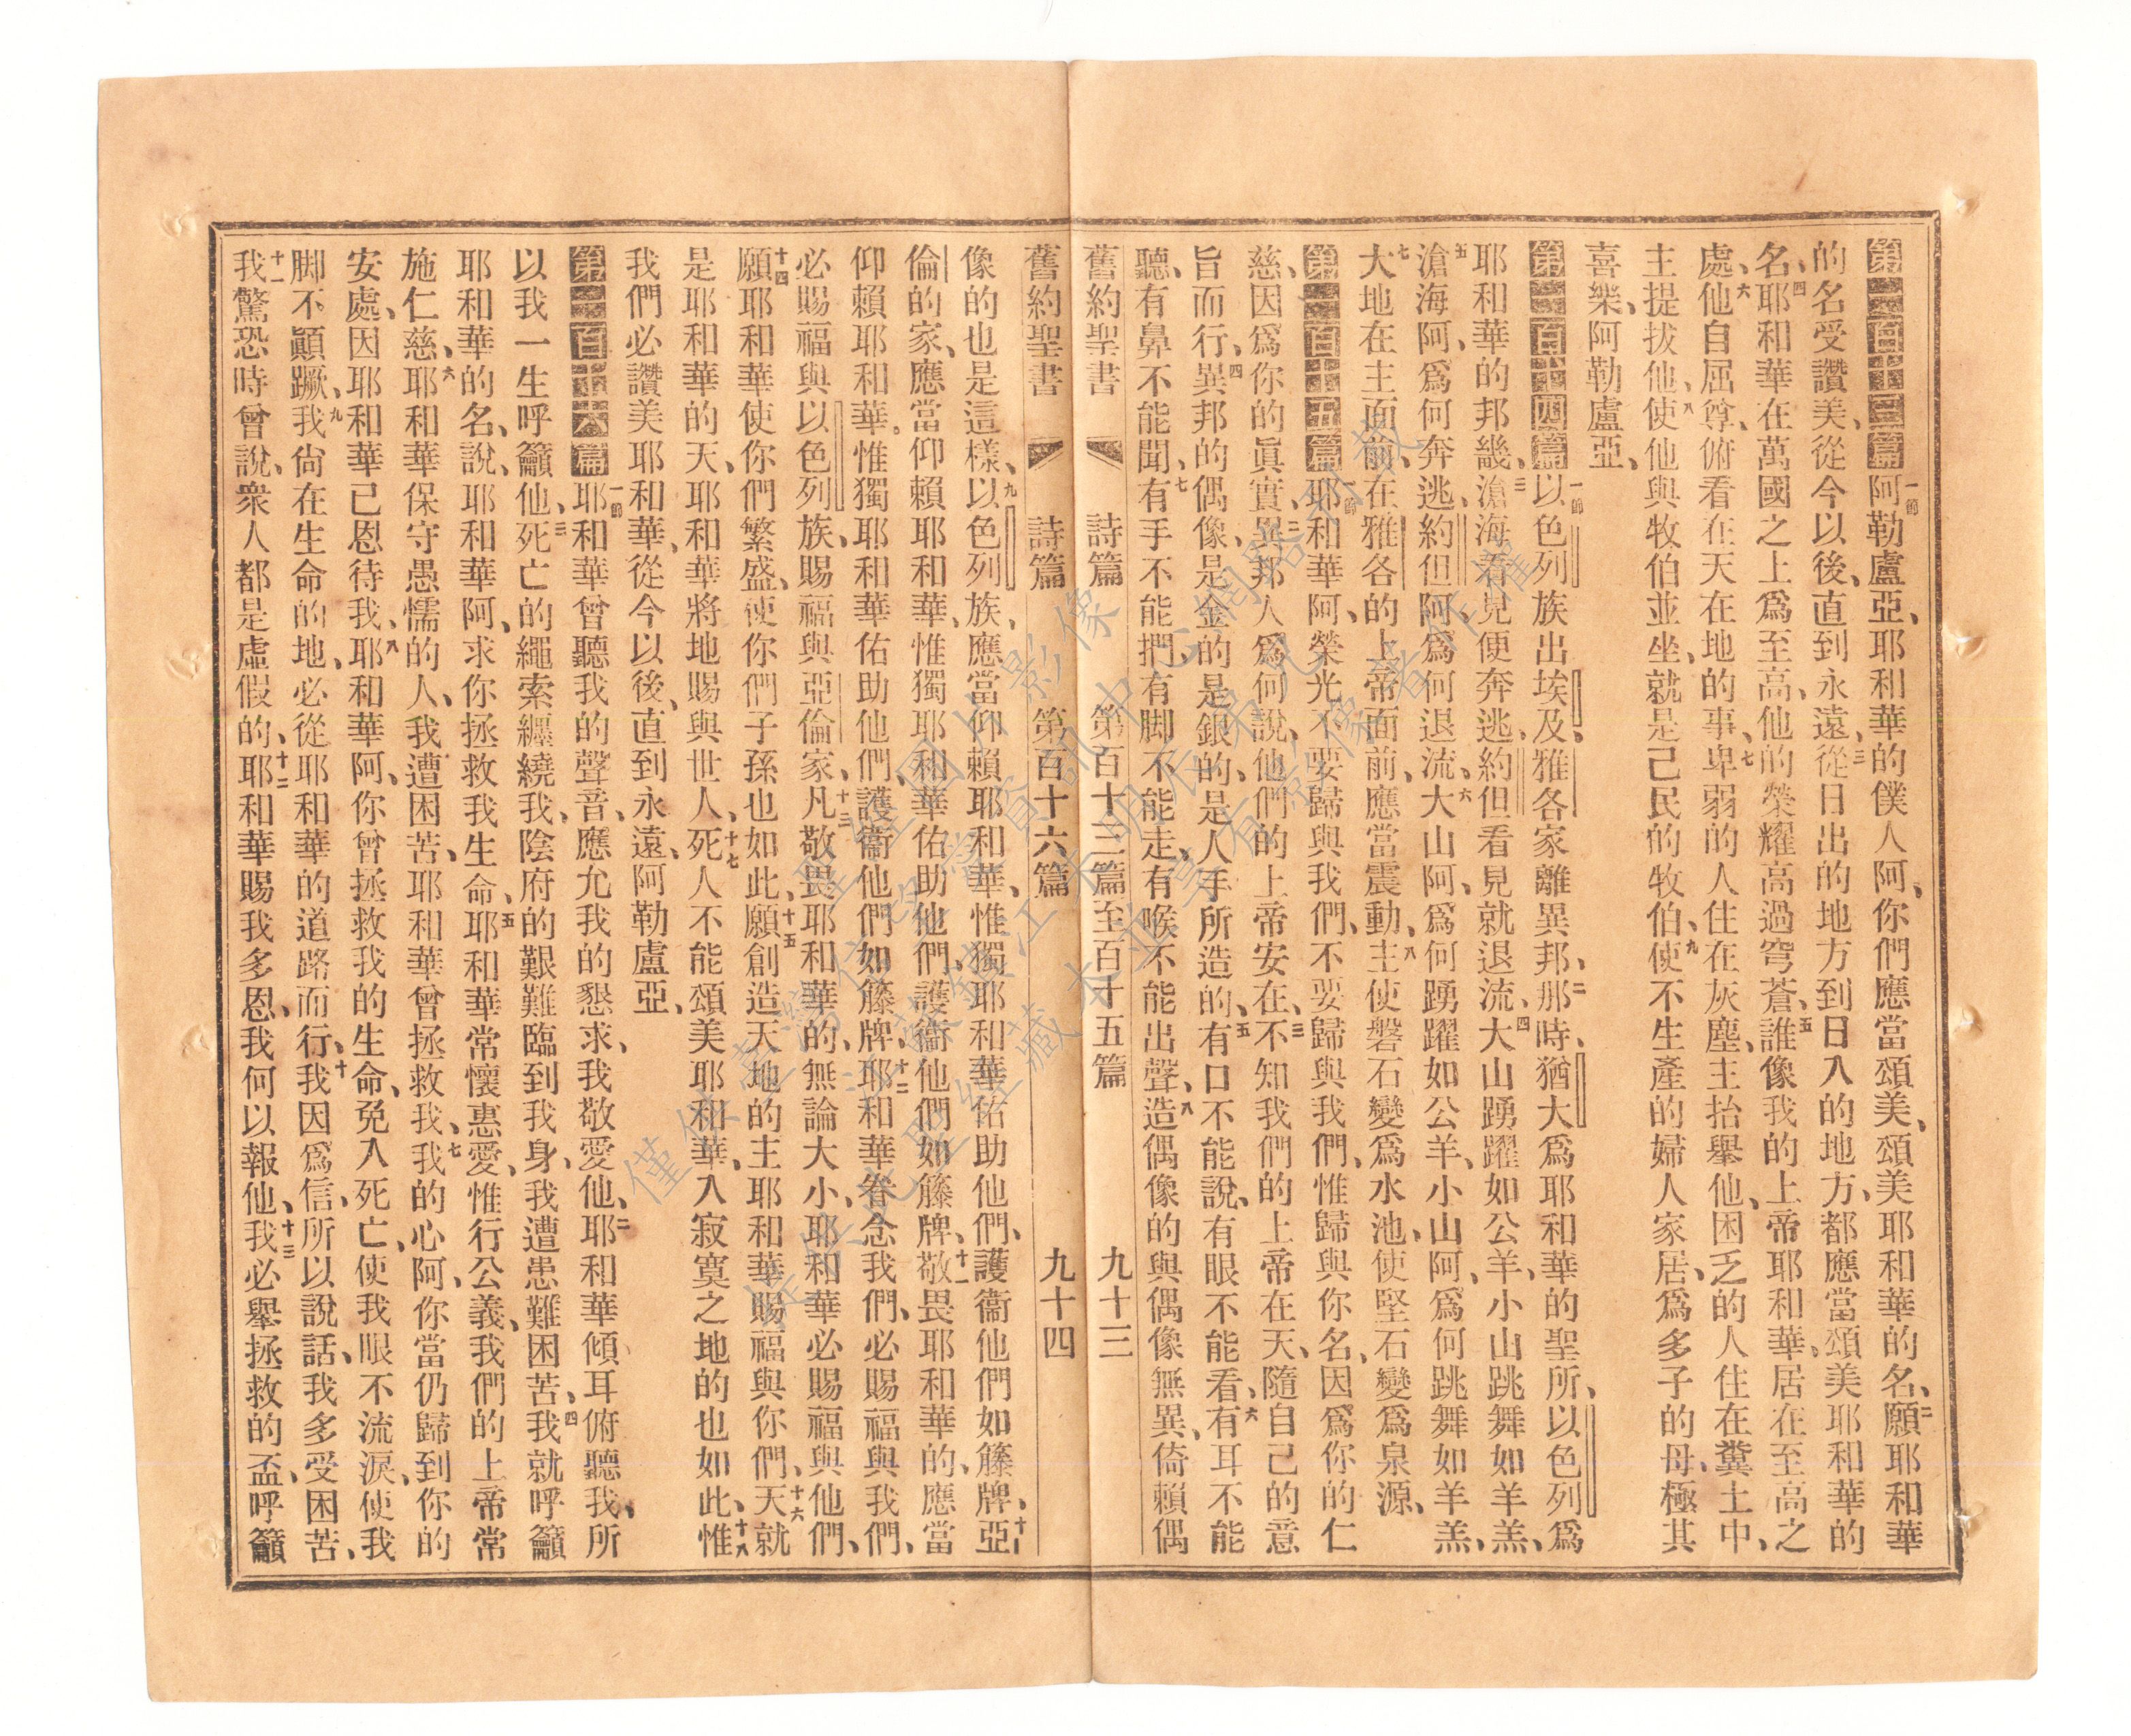 第一百十三篇一節阿勒盧亞、耶和華的僕人阿、你們應當頌美、頌美耶和華的名、二願耶和華
的名受讚美、從今以後、直到永遠、三從日出的地方到日入的地方、都應當頌美耶和華的
名、四耶和華在萬國之上爲至高、他的榮耀高過穹蒼、五誰像我的上帝耶和華、居在至高之
處、六他自屈尊、俯看在天在地的事、七卑弱的人住在灰塵、主抬舉他、困乏的人住在糞土中、
主提拔他、八使他與牧伯並坐、就是己民的牧伯、九使不生產的婦人家居、爲多子的母、極其
喜樂、阿勒盧亞、
第一百十四篇一節以色列族出埃及、雅各家離異邦、二那時、猶大爲耶和華的聖所、以色列爲
耶和華的邦畿、三滄海看見便奔逃、約但看見就退流、四大山踴躍如公羊、小山跳舞如羊羔、
五滄海阿、爲何奔逃、約但阿爲何退流、六大山阿、爲何踴躍如公羊、小山阿、爲何跳舞如羊羔、
七大地在主面前、在雅各的上帝面前、應當震動、八主使磐石變爲水池、使堅石變爲泉源、
第一百十五篇一節耶和華阿、榮光不要歸與我們、不要歸與我們、惟歸與你名、因爲你的仁
慈、因爲你的眞實、二異邦人爲何說、他們的上帝安在、三不知我們的上帝在天、隨自己的意
旨而行、四異邦的偶像、是金的是銀的、是人手所造的、五有口不能說、有眼不能看、六有耳不能
聽、有鼻不能聞、七有手不能捫、有脚不能走、有喉不能出聲、八造偶像的與偶像無異、倚賴偶
舊約聖書 詩篇 第百十三篇至百十五篇 九十三
舊約聖書 詩篇 第百十六篇 九十四
像的也是這樣、九以色列族、應當仰賴耶和華、惟獨耶和華佑助他們、護衞他們如籐牌、十亞
倫的家、應當仰賴耶和華、惟獨耶和華佑助他們、護衞他們如籐牌、十一敬畏耶和華的、應當
仰賴耶和華。惟獨耶和華佑助他們、護衞他們如籐牌、十二耶和華眷念我們、必賜福與我們、
必賜福與以色列族、賜福與亞倫家、十三凡敬畏耶和華的、無論大小、耶和華必賜福與他們、
十四願耶和華使你們繁盛、使你們子孫也如此、十五願創造天地的主耶和華賜福與你們、十六天就
是耶和華的天、耶和華將地賜與世人、十七死人不能頌美耶和華、入寂寞之地的也如此、十八惟
我們必讚美耶和華、從今以後、直到永遠、阿勒盧亞、
第一百十六篇一節耶和華曾聽我的聲音、應允我的懇求、我敬愛他、二耶和華傾耳俯聽我、所
以我一生呼籲他、三死亡的繩索纏繞我、陰府的艱難臨到我身、我遭患難困苦、四我就呼籲
耶和華的名、說、耶和華阿、求你拯救我生命、五耶和華常懷惠愛、惟行公義、我們的上帝常
施仁慈、六耶和華保守愚懦的人、我遭困苦、耶和華曾拯救我、七我的心阿、你當仍歸到你的
安處、因耶和華已恩待我、八耶和華阿、你曾拯救我的生命、免入死亡、使我眼不流淚、使我
脚不顚蹶、九我尙在生命的地、必從耶和華的道路而行、十我因爲信、所以說話、我多受困苦、
十一我驚恐時曾說、衆人都是虛假的、十二耶和華賜我多恩、我何以報他、十三我必舉拯救的盃、呼籲